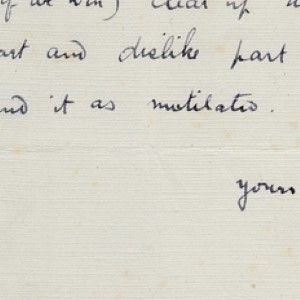 if we win) clear up
art and dislike part
nd it as mutilated.
yours